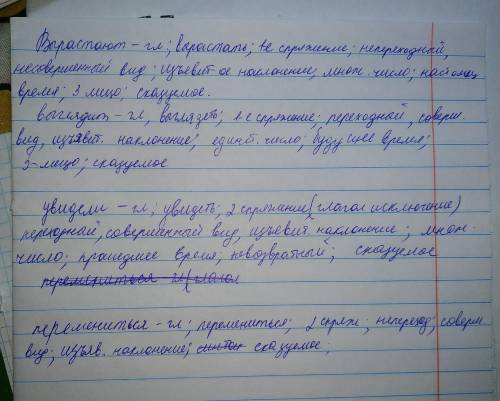 Вырастают - гл; вырастать; 1е спряжение; непереходный,
несовершенный вид; изъявит-ое наклонение, множ. число; настоящ.
время; 3 лицо; сказуемое.
выглядит - гл, выглядеть; 1 е спряжение; переходной, соверш.
вид, изъявит. наклонение; единст. число; будущее время;
3-лицо; сказуемое
увидели - гл; увидеть; 2 спряжание (глагол исключение)
переходный, совершенный вид, изъевит. наклонение; множ.
число; прошедшее время, невозвратный; сказуемое
перемениться гл (глагол
перемениться - гл; перемениться; 2 спряж; непереход; соверш.
вид; изъяв. наклонение; сказуемое;